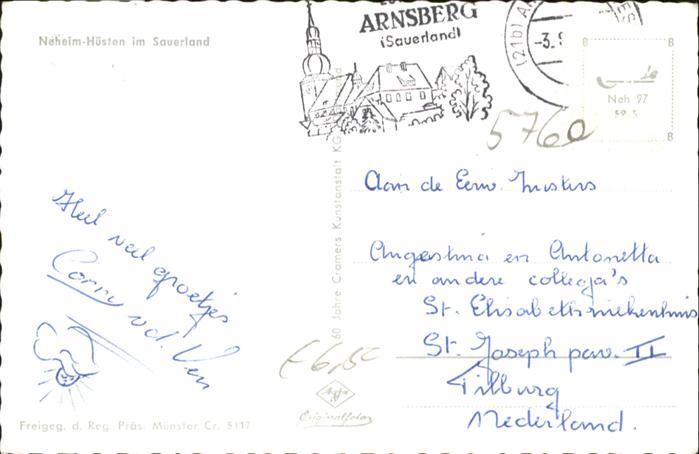 Neheim-Hüsten im Sauerland
ARNSBERG
(Sauerland)
(21b)
-3.9
Neh 97
59 5
5760
Heel veel groetjes
Corry v.d. Ven
60 Jahre Cramers Kunstanstalt KG
Aan de Eerw. Zusters
Augustina en Antonetta
en andere collega's
St. Elisabethziekenhuis
St. Joseph pav. II
Tilburg
Nederland.
€ 6,50
Agfa
Originalfoto
Freigeg. d. Reg. Präs. Münster Cr. 5117